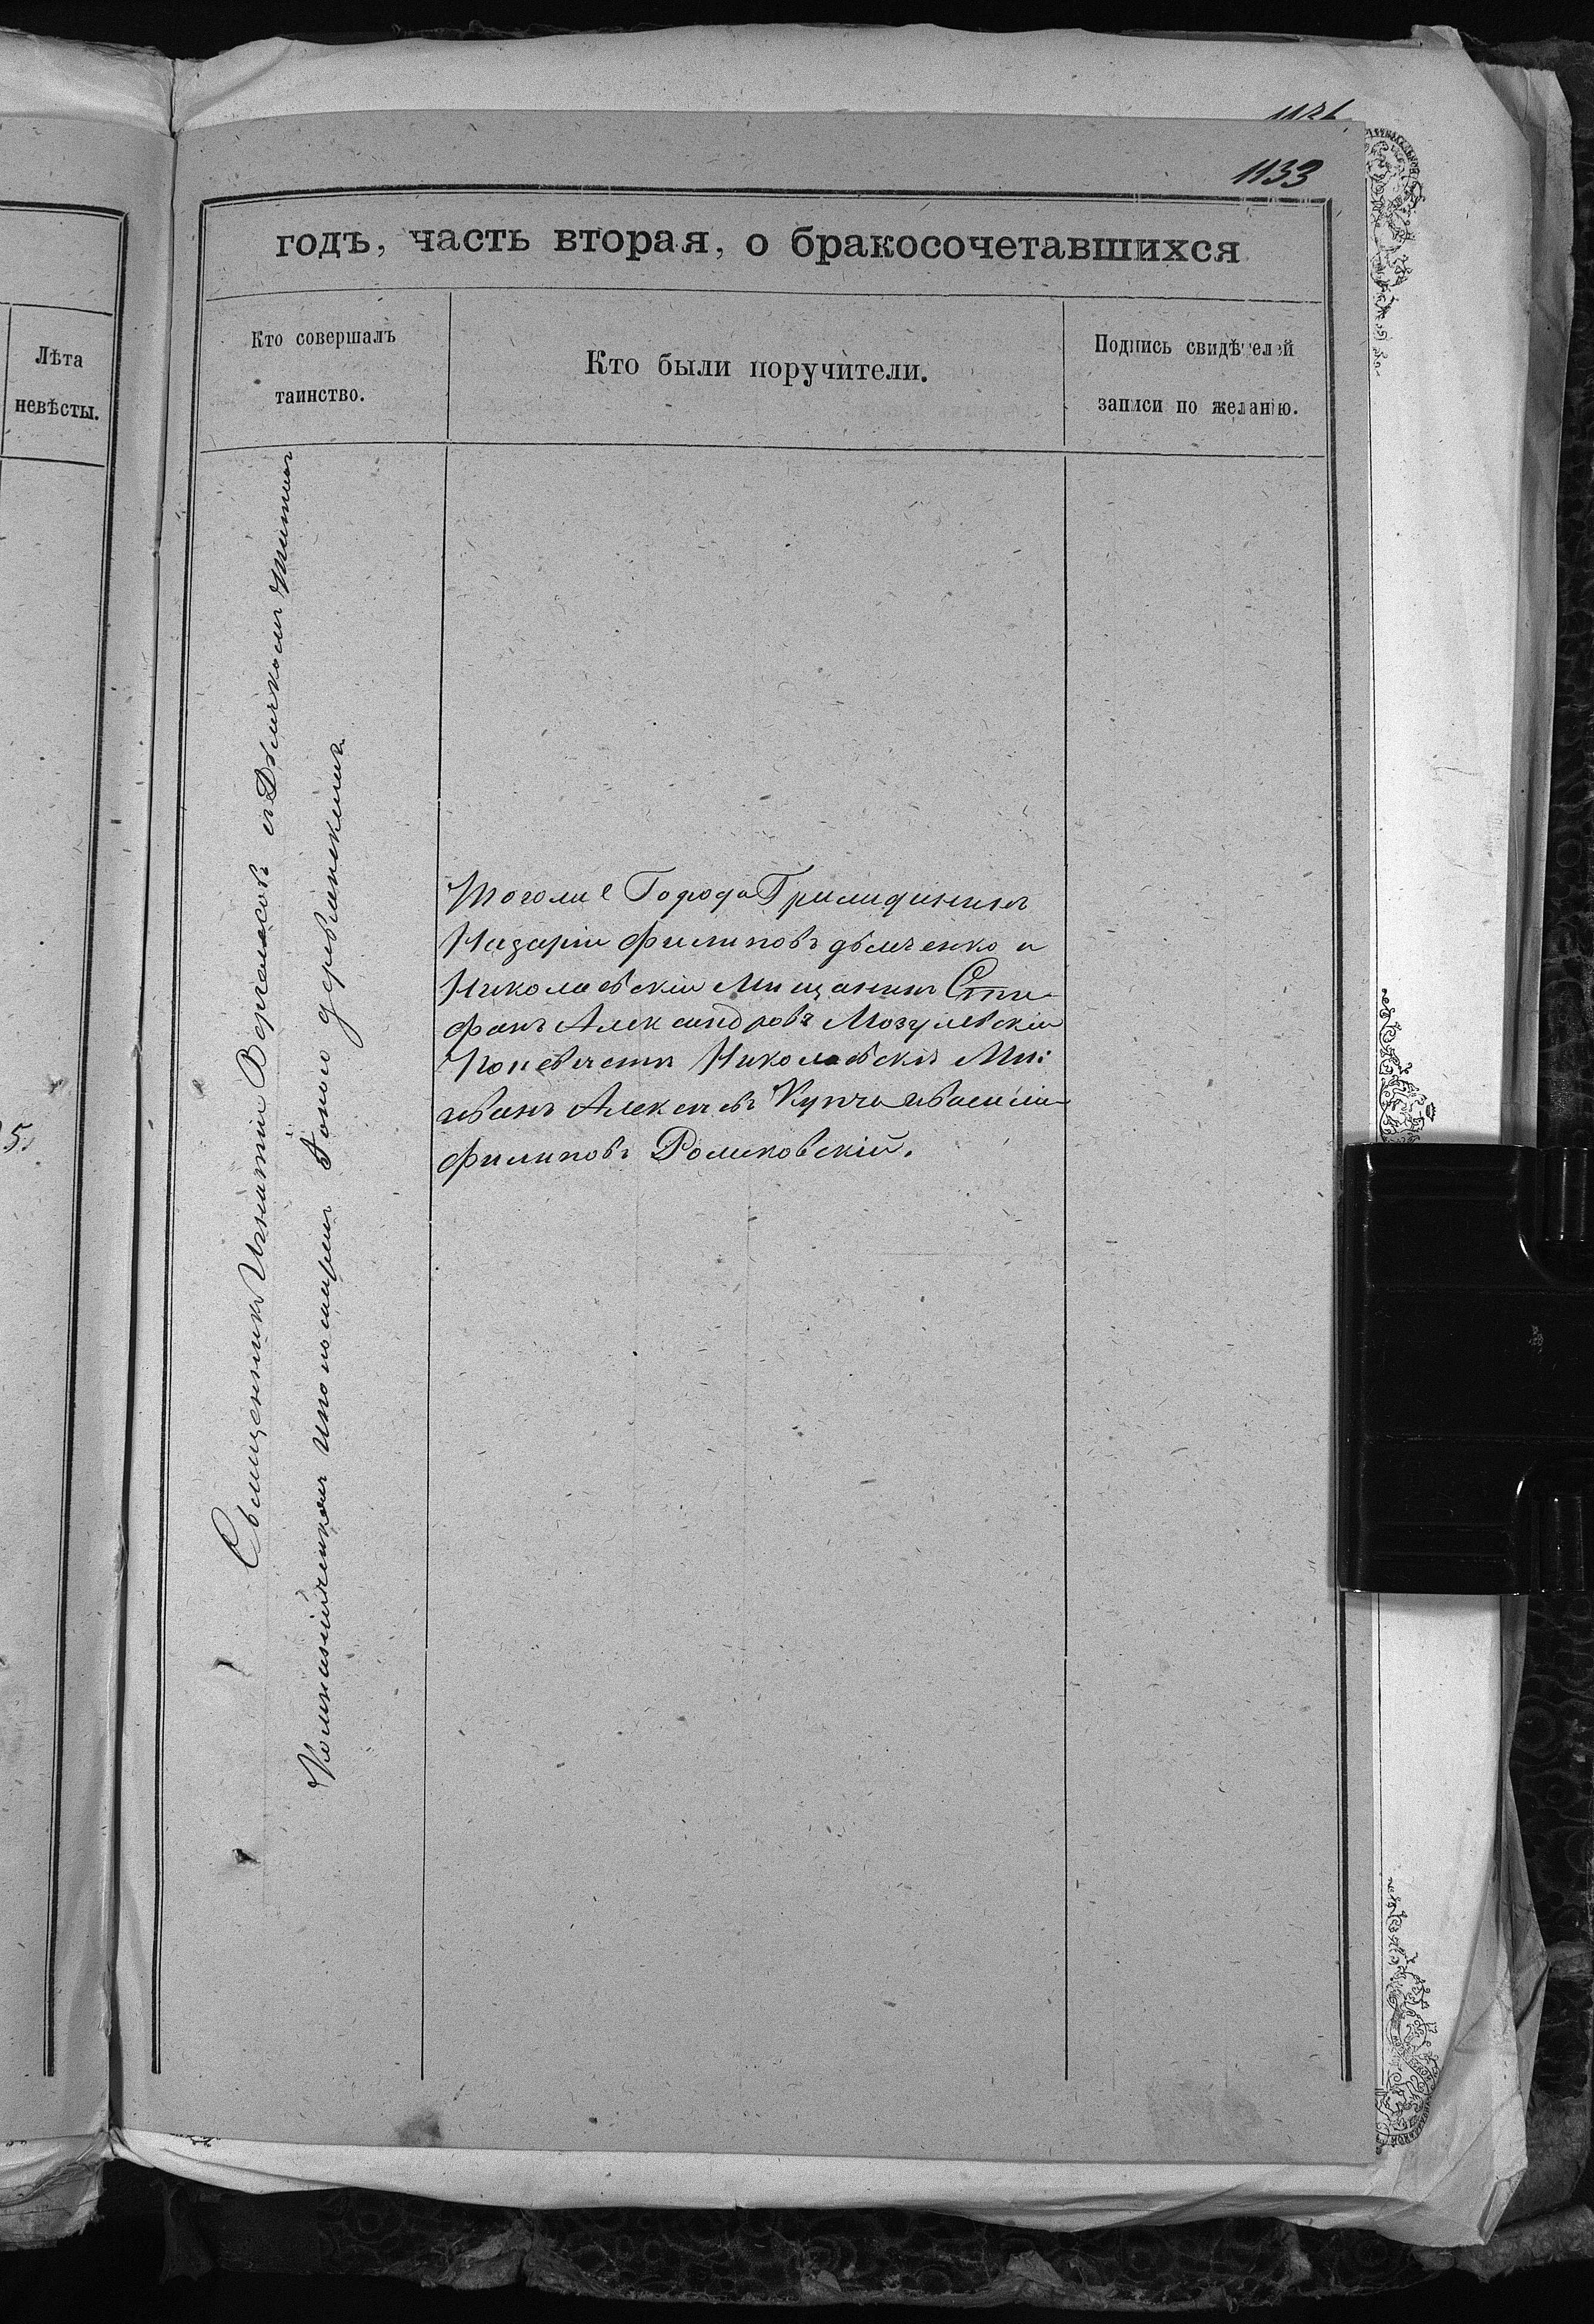 1133
годъ, часть вторая, о бракосочетавшихся
Лѣта
невѣсты.
Кто совершалъ
таинство.
Кто были поручители.
Подпись свидѣтелей
записи по желанію.
Священникъ Игнатій съ Дьячкомъ
и пономаремъ
Тогоже Города Гражданинъ
Назарій Филиповъ дѣмченко и
Николаевскій Мищанинъ Сте-
фанъ Александровъ Мозулевскій
По невѣстѣ Николаевскіе Мищ:
иванъ Алексѣевъ Купча иВасилій
Филиповъ Ромиковскій.
5.